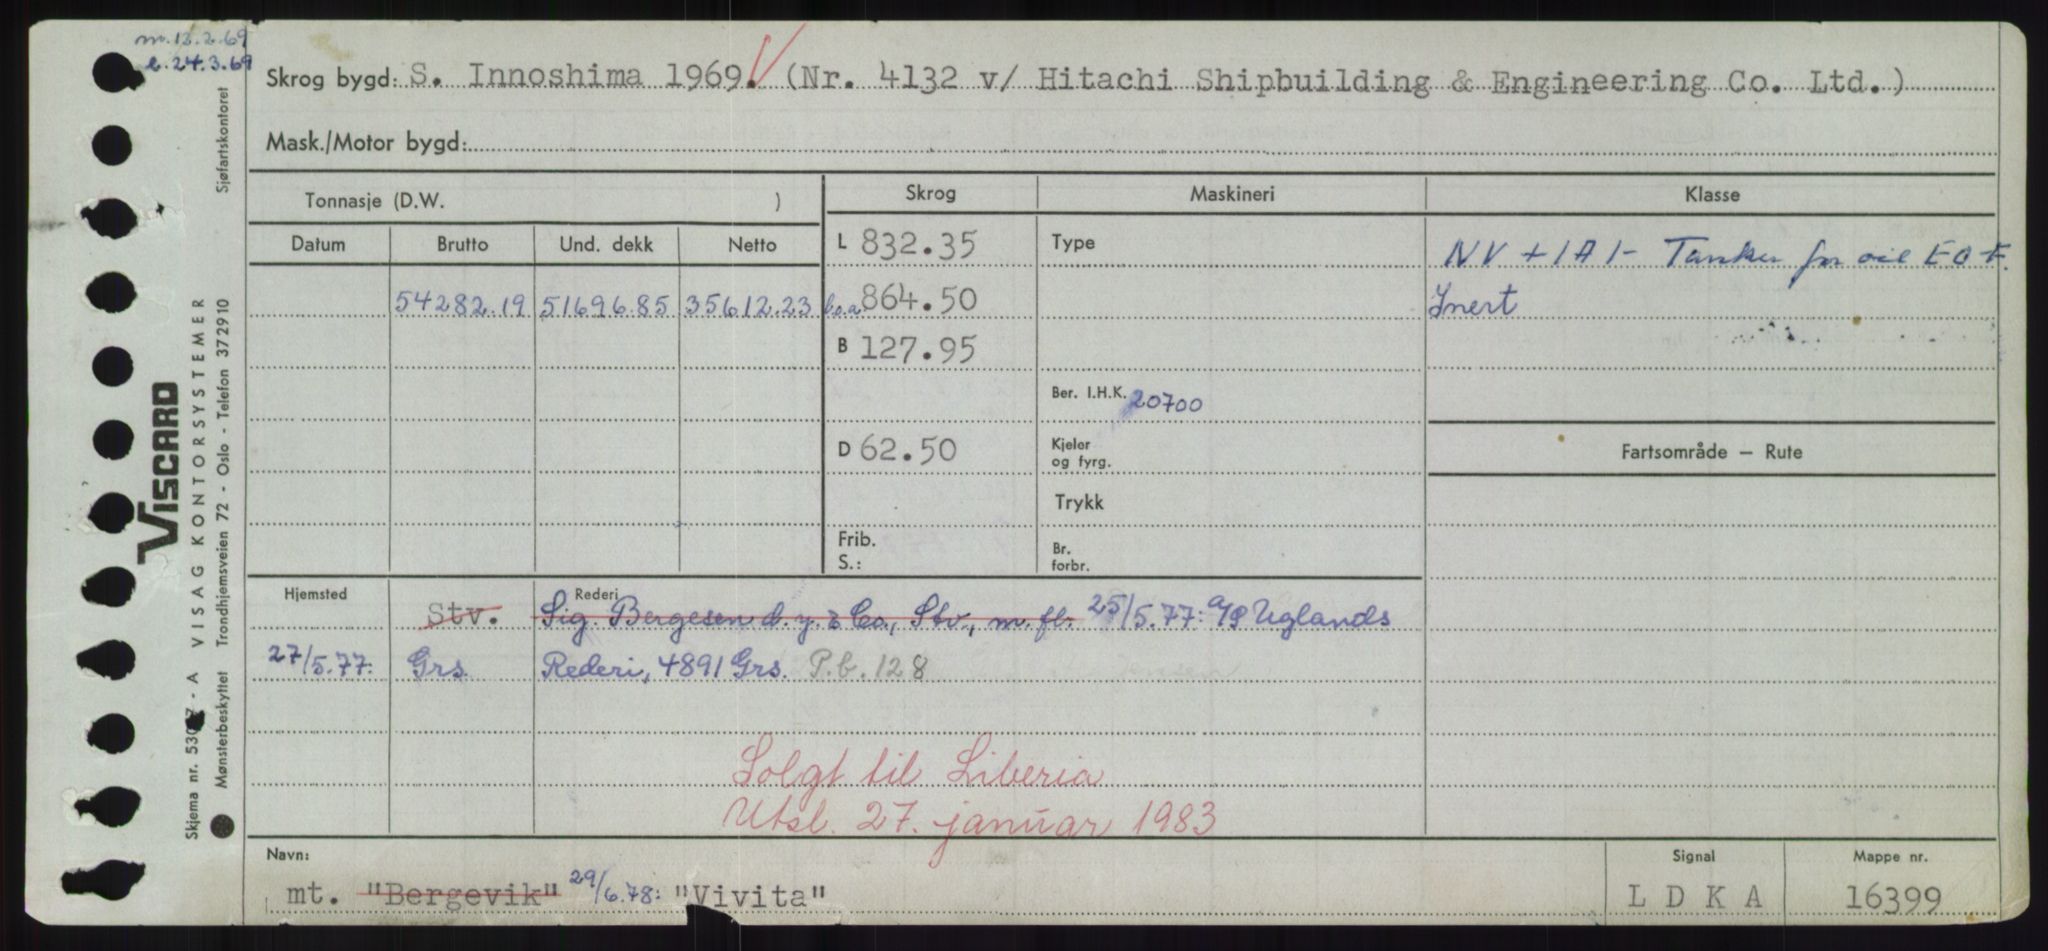 m. 12.2.69
l. 24.3.69
Skrog bygd: S. Innoshima 1969. (Nr. 4132 v/ Hitachi Shipbuilding & Engineering Co. Ltd.)
Mask./Motor bygd:
Tonnasje (D.W. )
Skrog
Maskineri
Klasse
Datum Brutto Und. dekk Netto
L 832.35
Type
NV + 1A1- Tanker for oil EO F.
54282.19 51696.85 35612.23 l.o.a. 864.50
Inert
B 127.95
Ber. I.H.K. 20700
D 62.50
Kjeler
og fyrg.
Fartsområde — Rute
Trykk
Frib.
S.:
Br.
forbr.
Hjemsted
Rederi
Stv. Sig. Bergesen d.y. & Co., Stv., m. fl. 25/5.77: A/S Uglands
27/5.77: Grs. Rederi, 4891 Grs. P.b. 128
Solgt til Liberia
Utsl. 27. januar 1983
Navn:
Signal
Mappe nr.
mt. "Bergevik" 29/6.78: "Vivita"
LDKA
16399
VISCARD
Skjema nr. 5307 - A VISAG KONTORSYSTEMER
Mønsterbeskyttet Trondhjemsveien 72 - Oslo - Telefon 372910 Sjøfartskontoret